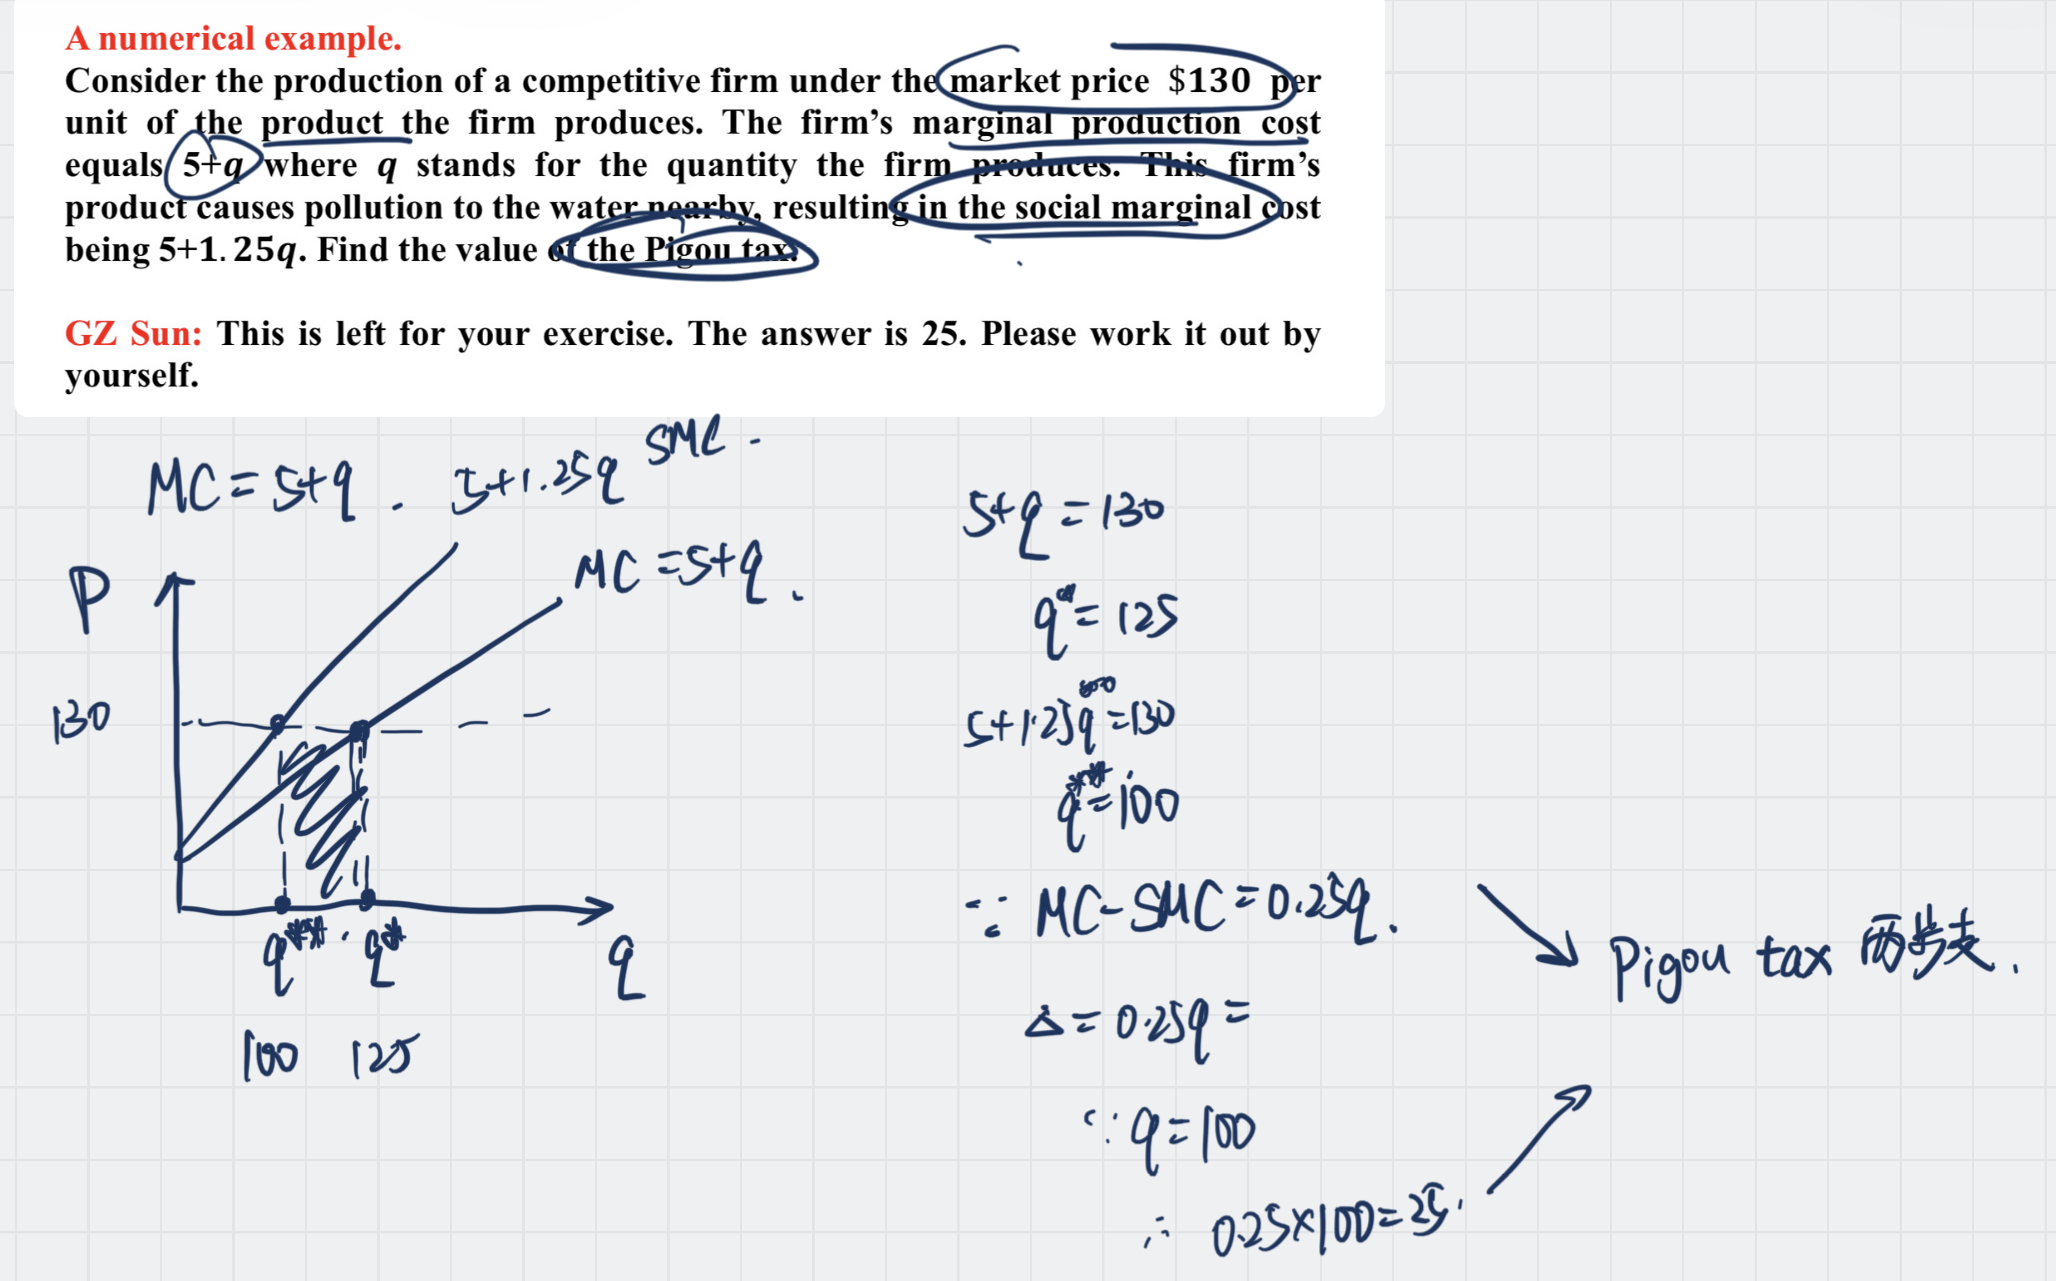 A numerical example.
Consider the production of a competitive firm under the market price $130 per
unit of the product the firm produces. The firm's marginal production cost
equals 5+q where q stands for the quantity the firm produces. This firm's
product causes pollution to the water nearby, resulting in the social marginal cost
being 5+1.25q. Find the value of the Pigou tax.
GZ Sun: This is left for your exercise. The answer is 25. Please work it out by
yourself.
MC = 5+q . 5+1.25q SMC .
MC = 5+q .
P
130
q** . q* q
100 125
5+q = 130
q* = 125
5+1.25q = 130
q** = 100
∵ MC-SMC = 0.25q .
Δ = 0.25q =
∵ q = 100
∴ 0.25×100 = 25 .
Pigou tax 两步走 .